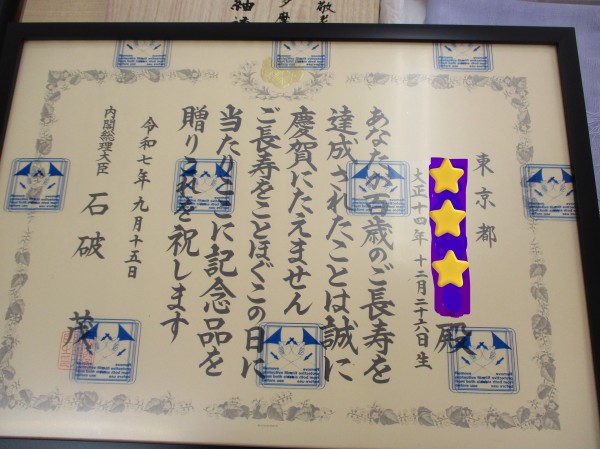 東京都
殿
大正十四年十二月二十六日生
あなたが百歳のご長寿を
達成されたことは誠に
慶賀にたえません
ご長寿をことほぐこの日に
当たりここに記念品を
贈りこれを祝します
令和七年九月十五日
内閣総理大臣 石破 茂